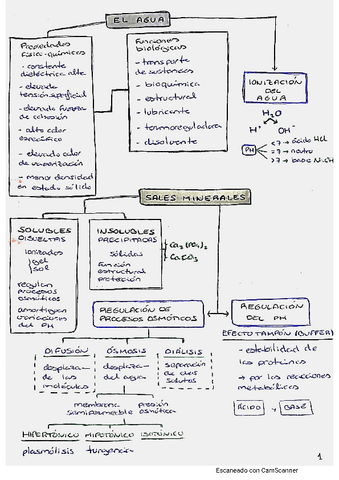 EL AGUA
Propiedades
físico-químicas
- constante
dieléctrica alta
- elevada
tensión superficial
- elevada fuerza
de cohesión
- alto calor
específico
- elevado calor
de vaporización
- menor densidad
en estado sólido
Funciones
biológicas
- transporte
de sustancias
- bioquímica
- estructural
- lubricante
- termorreguladora
- disolvente
IONIZACIÓN
DEL
AGUA
H₂O
H⁺ OH⁻
PH
<7 → ácido HCl
=7 → neutro
>7 → base
SALES MINERALES
SOLUBLES
DISUELTAS
ionizadas
gel
sol
regulan
procesos
osmóticos
amortiguan
variaciones
del PH
INSOLUBLES
PRECIPITADAS
sólidas
función
estructural
protección
Ca₃(PO₄)₂
CaCO₃
REGULACIÓN DE
PROCESOS OSMÓTICOS
REGULACIÓN
DEL PH
EFECTO TAMPÓN (BUFFER)
- estabilidad de
las proteínas
→ por las reacciones
metabólicas
ÁCIDO y BASE
DIFUSIÓN
desplaza-
de las
moléculas
ÓSMOSIS
desplaza-
del agua
DIÁLISIS
separación
de dos
solutos
membrana
semipermeable
presión
osmótica
HIPERTÓNICO HIPOTÓNICO ISOTÓNICO
plasmólisis turgencia
1
Escaneado con CamScanner